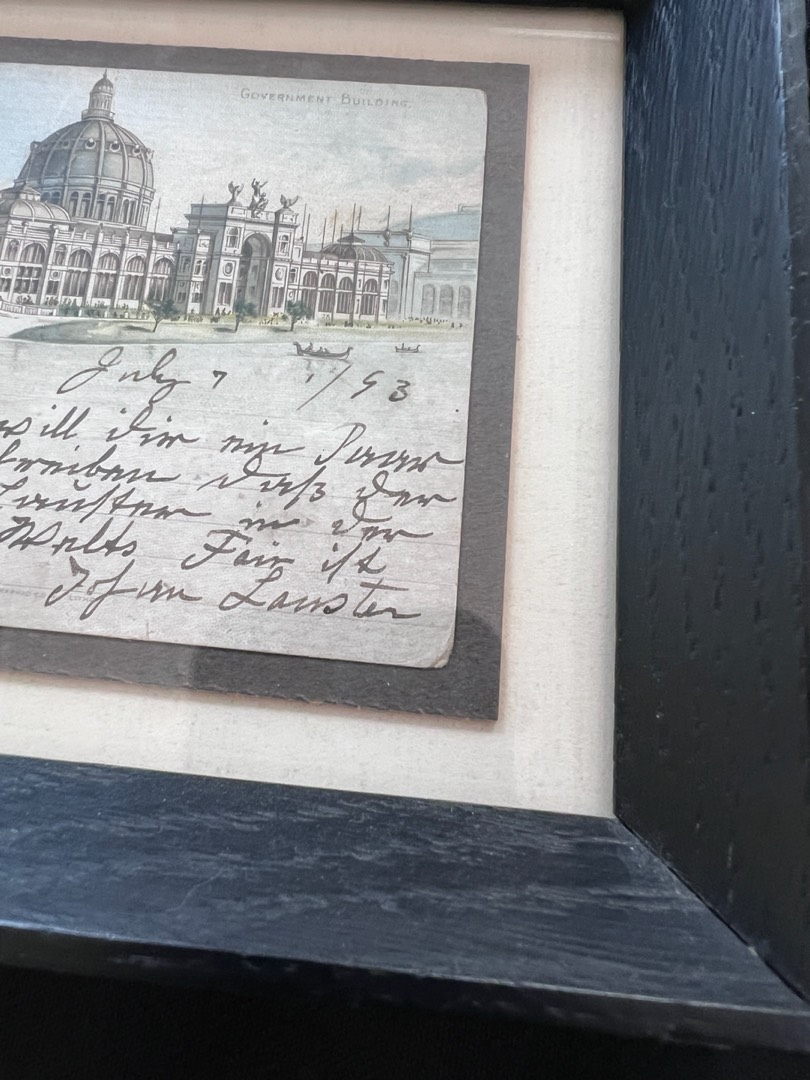 GOVERNMENT BUILDING.
July 7 1/93
will dir ein Paar
schreiben daß der
Lauster in der
Welts Fair ist
Johan Lauster